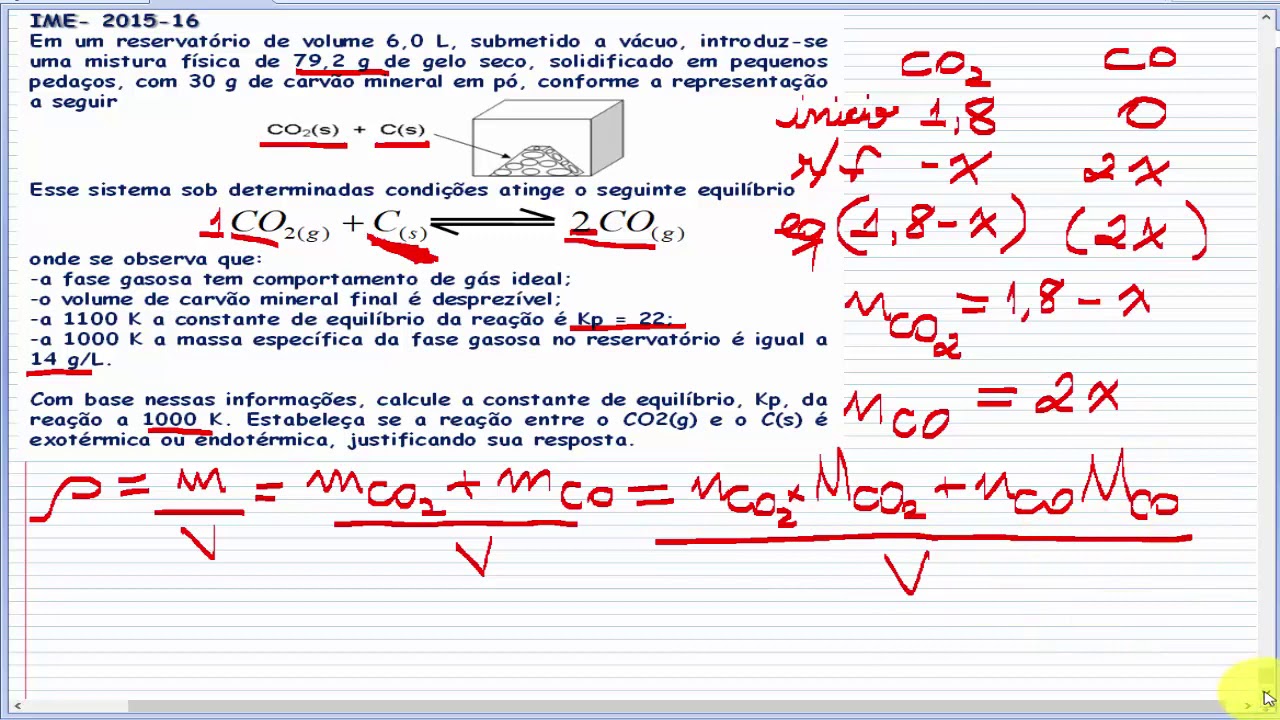 IME- 2015-16
Em um reservatório de volume 6,0 L, submetido a vácuo, introduz-se
uma mistura física de 79,2 g de gelo seco, solidificado em pequenos
pedaços, com 30 g de carvão mineral em pó, conforme a representação
a seguir
CO₂(s) + C(s)
Esse sistema sob determinadas condições atinge o seguinte equilíbrio
1 CO₂(g) + C(s) ⇌ 2 CO(g)
onde se observa que:
-a fase gasosa tem comportamento de gás ideal;
-o volume de carvão mineral final é desprezível;
-a 1100 K a constante de equilíbrio da reação é Kp = 22;
-a 1000 K a massa específica da fase gasosa no reservatório é igual a
14 g/L.
Com base nessas informações, calcule a constante de equilíbrio, Kp, da
reação a 1000 K. Estabeleça se a reação entre o CO2(g) e o C(s) é
exotérmica ou endotérmica, justificando sua resposta.
CO₂ CO
início 1,8 0
r/f -x 2x
eq (1,8-x) (2x)
nCO₂ = 1,8 - x
nCO = 2x
ρ = m/V = (mCO₂ + mCO)/V = (nCO₂ × MCO₂ + nCO MCO)/V